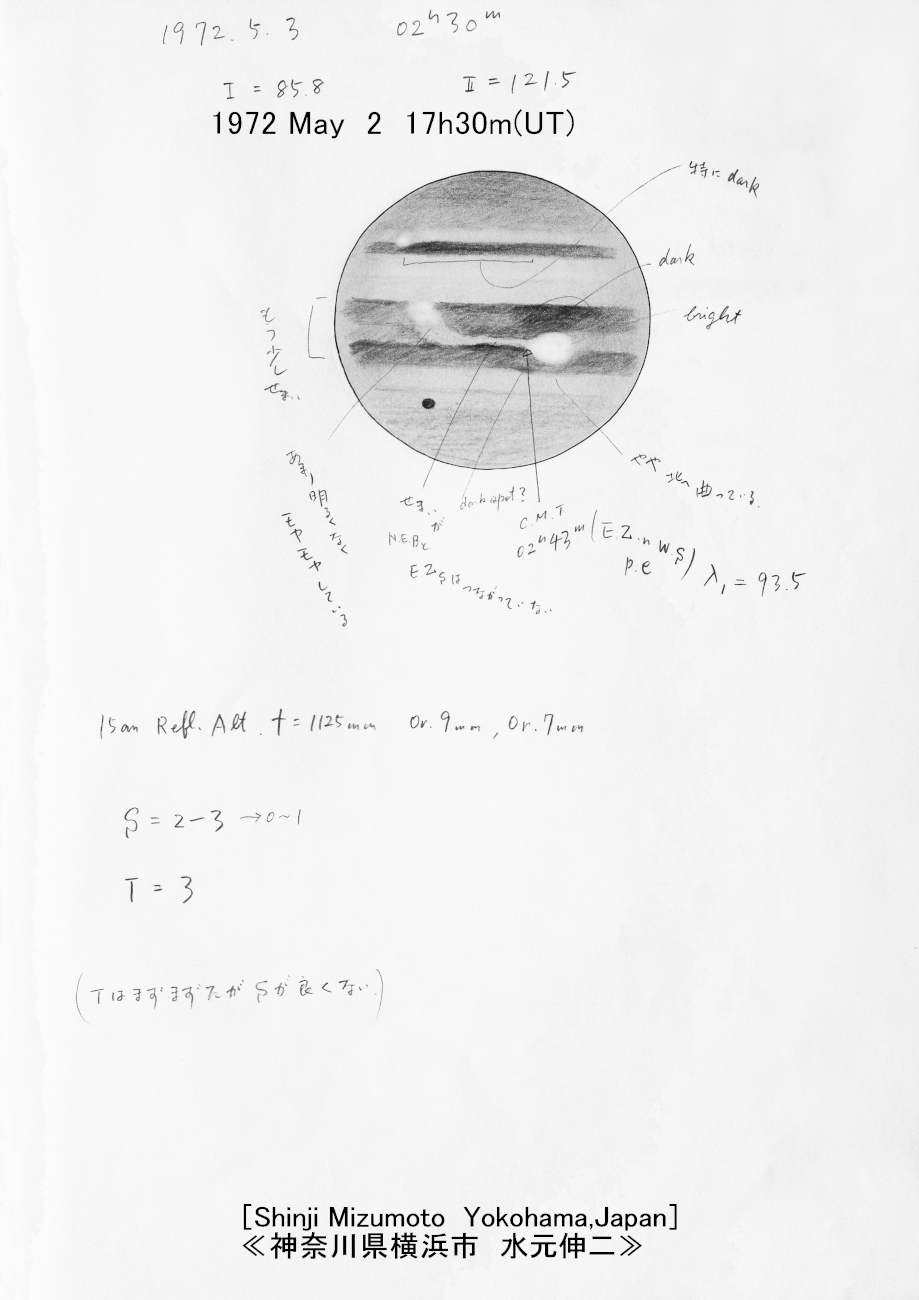 1972. 5. 3 02h30m
I = 85.8 II = 121.5
1972 May 2 17h30m(UT)
特に dark
dark
bright
もう少しせまい
あまり明るくなく
モヤモヤしている
せまい
dark spot?
が
N.E.Bと
EZsはつながっていない
C.M.T
02h43m (E.Z.n W.S p.e) λ₁ = 93.5
やや北へ曲っている.
15cm Refl. Alt. f = 1125mm Or. 9mm, Or. 7mm
S = 2-3 →0~1
T = 3
(Tはまずまずだが Sが良くない.)
[Shinji Mizumoto Yokohama,Japan]
≪神奈川県横浜市 水元伸二≫